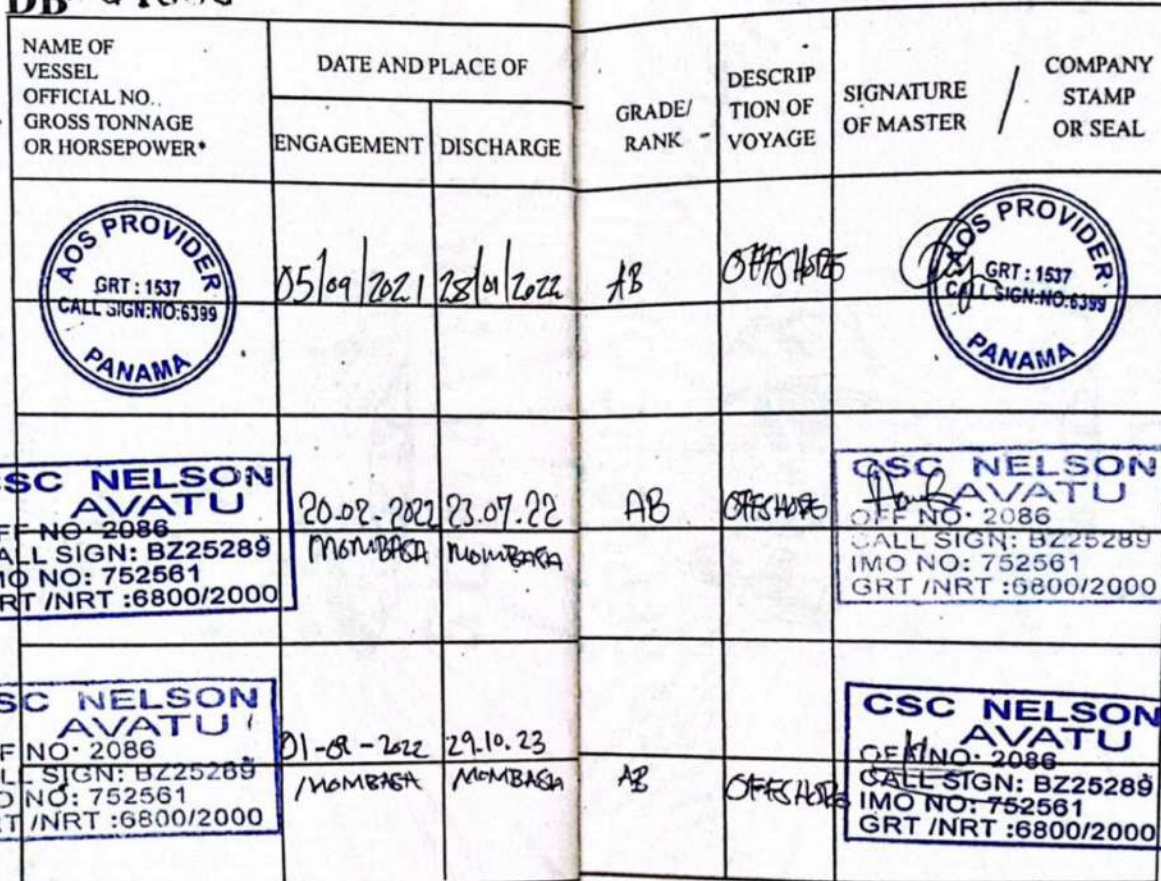 DB
NAME OF
VESSEL
OFFICIAL NO..
GROSS TONNAGE
OR HORSEPOWER*
DATE AND PLACE OF
ENGAGEMENT
DISCHARGE
GRADE/
RANK
DESCRIP
TION OF
VOYAGE
SIGNATURE
OF MASTER
/
COMPANY
STAMP
OR SEAL
AOS PROVIDER
GRT : 1537
CALL SIGN:NO:6399
PANAMA
05/09/2021
28/01/2022
AB
OFFSHORE
AOS PROVIDER
GRT : 1537
CALL SIGN:NO:6399
PANAMA
CSC NELSON
AVATU
FF NO· 2086
ALL SIGN: BZ25289
MO NO: 752561
RT /NRT :6800/2000
20-02-2022
MOMBASA
23.07.22
MOMBASA
AB
OFFSHORE
CSC NELSON
AVATU
OFF NO· 2086
CALL SIGN: BZ25289
IMO NO: 752561
GRT /NRT :6800/2000
SC NELSON
AVATU
F NO· 2086
LL SIGN: BZ25289
O NO: 752561
RT /NRT :6800/2000
2022
MOMBASA
29.10.23
MOMBASA
AB
OFFSHORE
CSC NELSON
AVATU
OFF NO· 2086
CALL SIGN: BZ25289
IMO NO: 752561
GRT /NRT :6800/2000